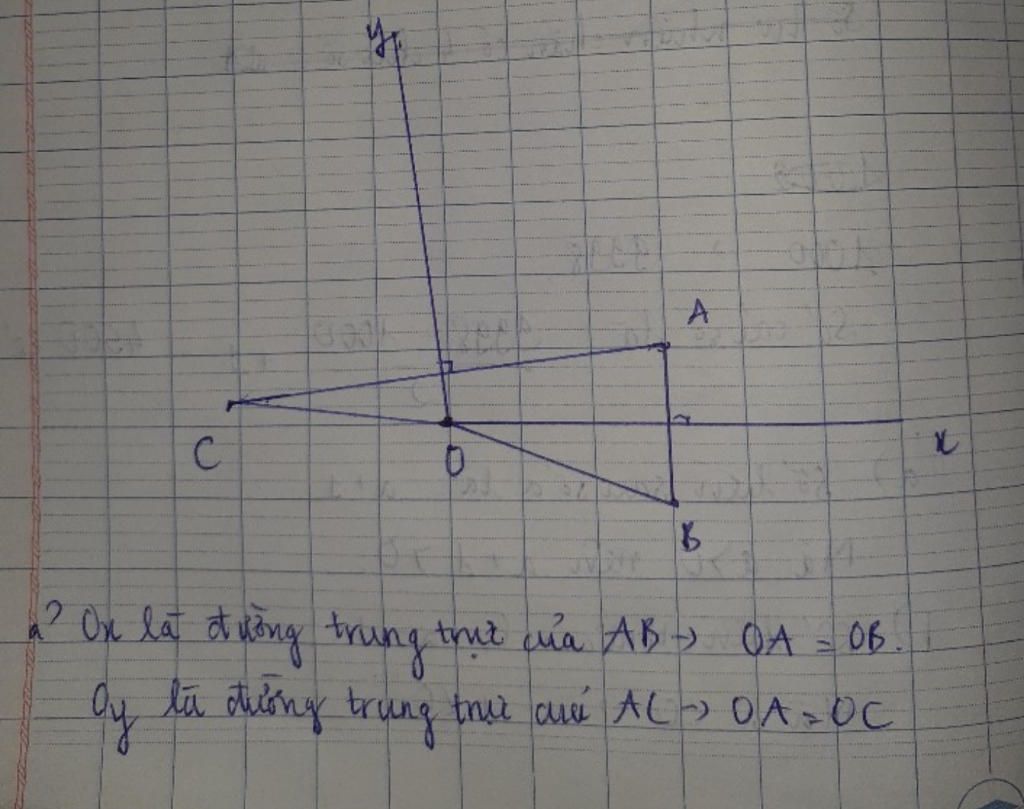 y
A
C
O
x
B
a) Ox là đường trung trực của AB → OA = OB.
Oy là đường trung trực của AC → OA = OC